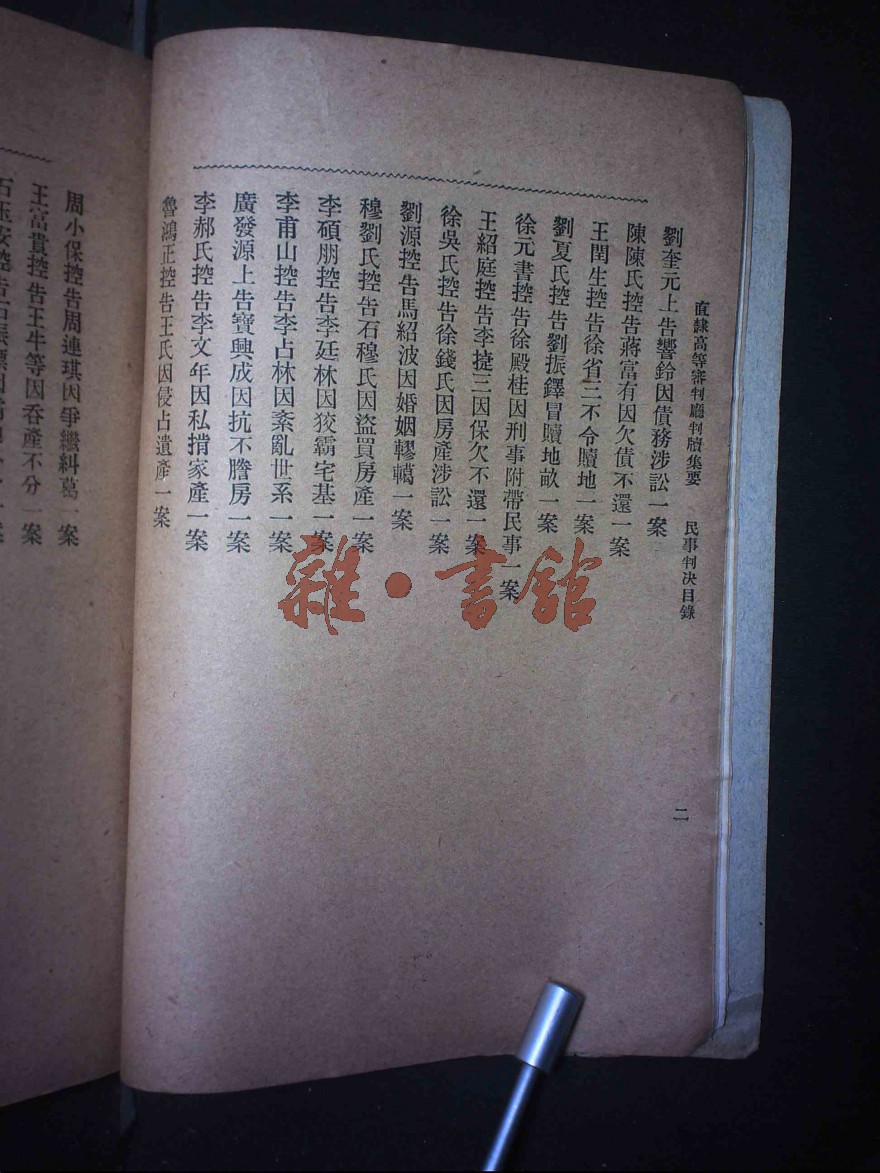 直隸高等審判廳判牘集要 民事判決目錄 二
劉奎元上告響鈴因債務涉訟一案
陳陳氏控告蔣富有因欠債不還一案
王閏生控告徐省三不令贖地一案
劉夏氏控告劉振鐸冒贖地畝一案
徐元書控告徐殿桂因刑事附帶民事一案
王紹庭控告李捷三因保欠不還一案
徐吳氏控告徐錢氏因房產涉訟一案
劉源控告馬紹波因婚姻轇轕一案
穆劉氏控告石穆氏因盜買房產一案
李碩朋控告李廷林因狡霸宅基一案
李甫山控告李占林因紊亂世系一案
廣發源上告寶興成因抗不騰房一案
李郝氏控告李文年因私揹家產一案
魯鴻正控告王氏因侵占遺產一案
周小保控告周連琪因爭繼糾葛一案
王富貴控告王牛等因吞產不分一案
石玉安控告石振
雜·書館